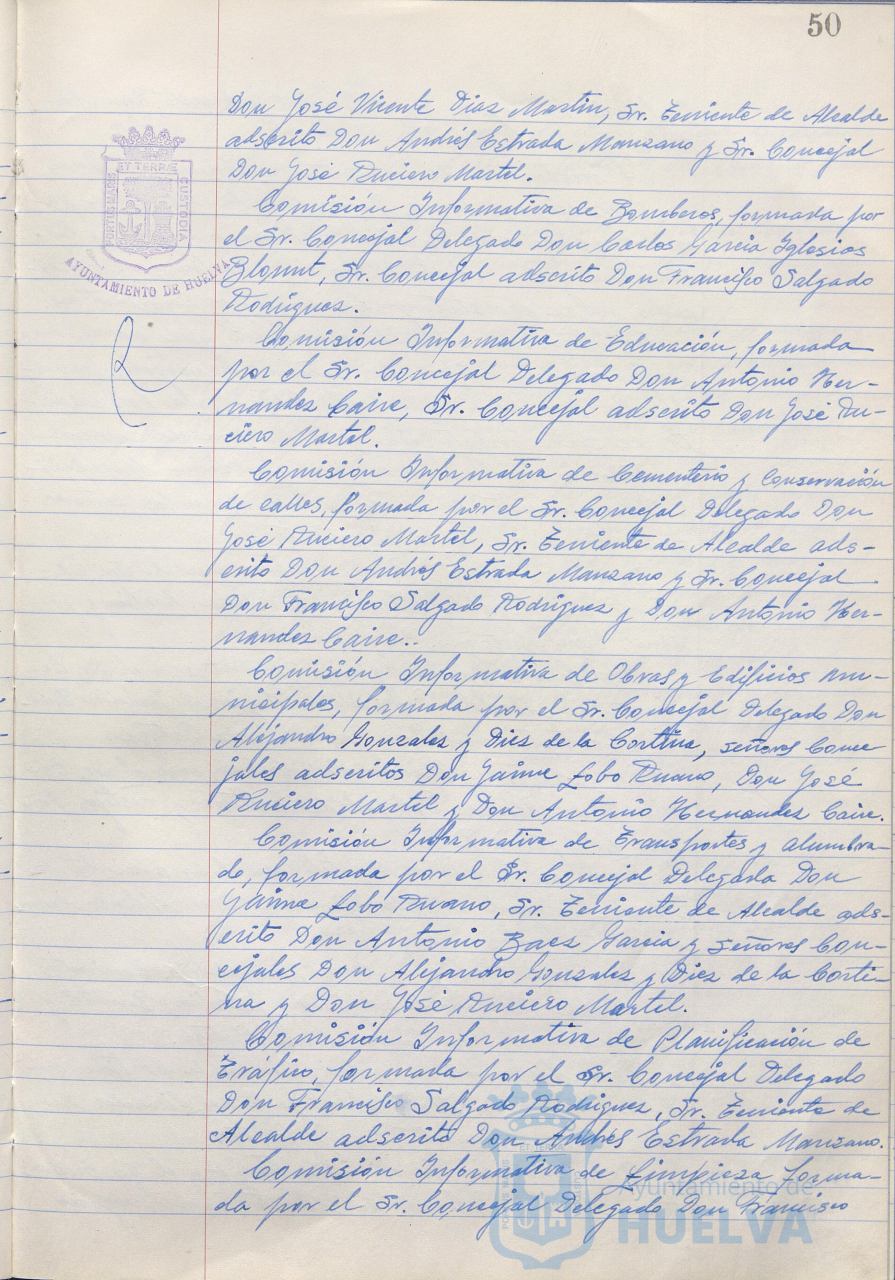 50
Don José Vicente Diaz Martin, Sr. Teniente de Alcalde
adscrito Don Andrés Estrada Manzano y Sr. Concejal
Don José Ruciero Martel.
Comisión Informativa de Bomberos, formada por
el Sr. Concejal Delegado Don Carlos Garcia Iglesias
Blount, Sr. Concejal adscrito Don Francisco Salgado
Rodriguez.
Comisión Informativa de Educación, formada
por el Sr. Concejal Delegado Don Antonio Her-
nandez Caire, Sr. Concejal adscrito Don José Ru-
ciero Martel.
Comisión Informativa de Cementerio y Conservación
de calles, formada por el Sr. Concejal Delegado Don
José Ruciero Martel, Sr. Teniente de Alcalde ads-
crito Don Andrés Estrada Manzano y Sr. Concejal
Don Francisco Salgado Rodriguez y Don Antonio Her-
nandez Caire..
Comisión Informativa de Obras y Edificios mu-
nicipales, formada por el Sr. Concejal Delegado Don
Alejandro Gonzalez y Diez de la Cortina, señores Conce
jales adscritos Don Jaime Lobo Ruano, Don José
Ruciero Martel y Don Antonio Hernandez Caire.
Comisión Informativa de Transportes y alumbra-
do, formada por el Sr. Concejal Delegada Don
Jaime Lobo Ruano, Sr. Teniente de Alcalde ads-
crito Don Antonio Baez Garcia y señores Con-
cejales Don Alejandro Gonzalez y Diez de la Corti-
na y Don José Ruciero Martel.
Comisión Informativa de Planificación de
Tráfico, formada por el Sr. Concejal Delegado
Don Francisco Salgado Rodriguez, Sr. Teniente de
Alcalde adscrito Don Andrés Estrada Manzano.
Comisión Informativa de Limpieza forma-
da por el Sr. Concejal Delegado Don Francisco
PORTUS MARIS ET TERRÆ CUSTODIA
AYUNTAMIENTO DE HUELVA
Ayuntamiento de
HUELVA